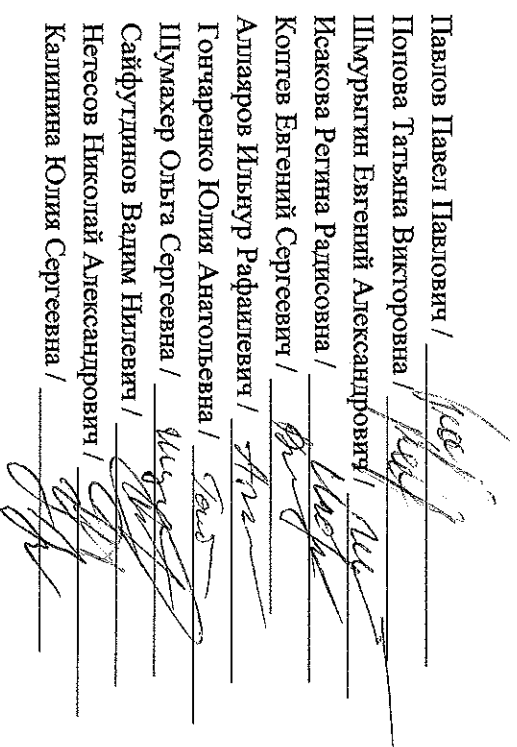 Павлов Павел Павлович /
Попова Татьяна Викторовна /
Шмурыгин Евгений Александрович /
Исакова Регина Радисовна /
Коптев Евгений Сергеевич /
Аллаяров Ильнур Рафаилевич /
Гончаренко Юлия Анатольевна /
Шумахер Ольга Сергеевна /
Сайфутдинов Вадим Нилевич /
Нетесов Николай Александрович /
Калинина Юлия Сергеевна /